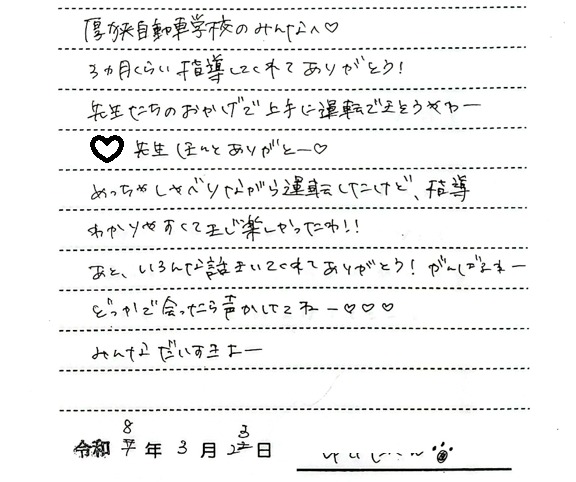 厚狭自動車学校のみんなへ♡
3ヵ月くらい指導してくれてありがとう!
先生たちのおかげで上手に運転できそうやわー
♡先生ほんとありがとー♡
めっちゃしゃべりながら運転したけど、指導
わかりやすくてまじ楽しかったわ!!
あと、いろんな話きいてくれてありがとう! がんばるねー
どっかで会ったら声かしてねー♡♡♡
みんなだいすきよー
令和 8年 3月 23日